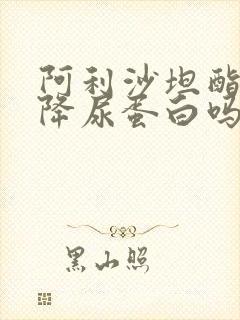 阿利沙坦酯
降尿蛋白吗
黑山照